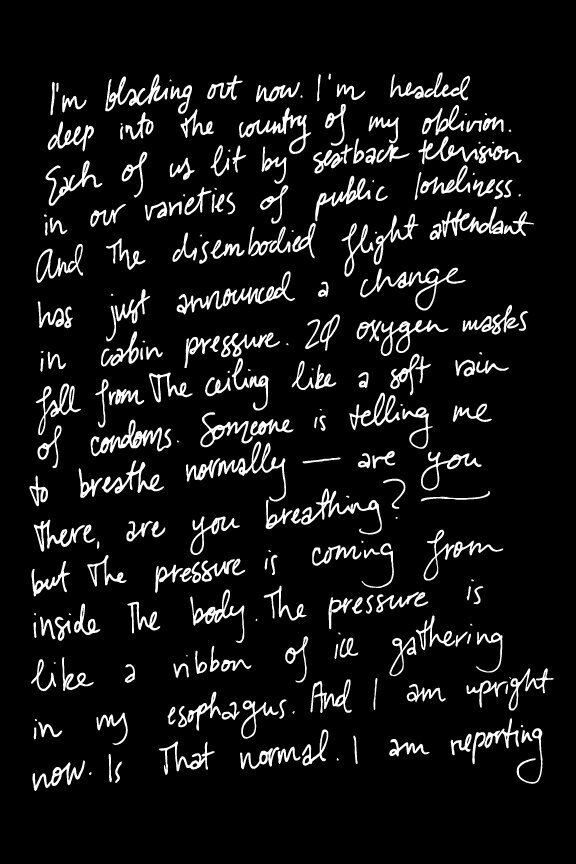 I'm blacking out now. I'm headed
deep into the country of my oblivion.
Each of us lit by seatback television
in our varieties of public loneliness.
And the disembodied flight attendant
has just announced a change
in cabin pressure. 20 oxygen masks
fall from the ceiling like a soft rain
of condoms. Someone is telling me
to breathe normally — are you
there, are you breathing? —
but the pressure is coming from
inside the body. The pressure is
like a ribbon of ice gathering
in my esophagus. And I am upright
now. Is that normal. I am reporting